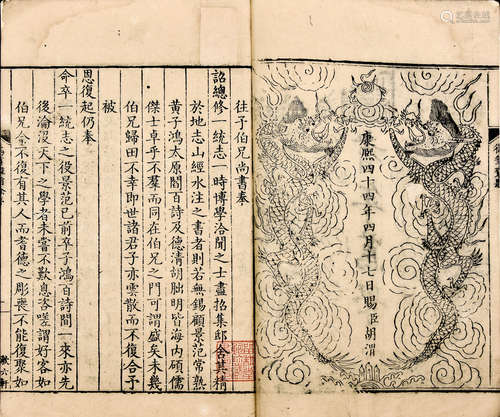 康熙四十四年四月十七日賜臣胡渭
往予伯兄尚書奉
詔總修一統志一時博學洽聞之士盡招集邸舍其精
於地志山經水注之書者則若無錫顧景范常熟
黃子鴻太原閻百詩及德清胡朏明皆海內碩儒
傑士卓乎不羣而同在伯兄之門可謂盛矣未幾
伯兄歸田不幸即世諸君子亦雲散而不復合予
被
恩復起仍奉
命卒一統志之役景范已前卒子鴻百詩間一來亦先
後淪沒天下之學者未嘗不歎息洛嗟謂好客如
伯兄余不復有其人而耆德之彫喪不能復聚如